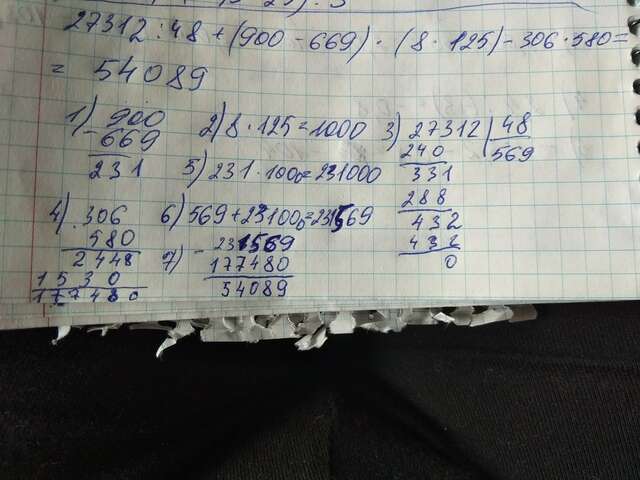 27312 : 48 + (900 - 669) · (8 · 125) - 306 · 580 =
= 54089
1) 900
- 669
231
2) 8 · 125 = 1000
3) 27312 | 48
240 569
331
288
432
432
0
5) 231 · 1000 = 231000
4) 306
580
2448
1530
177480
6) 569 + 231000 = 231569
7) - 231569
177480
54089